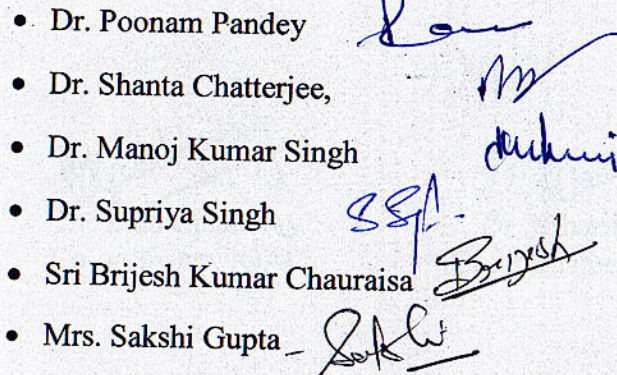 • Dr. Poonam Pandey
• Dr. Shanta Chatterjee,
• Dr. Manoj Kumar Singh
• Dr. Supriya Singh
• Sri Brijesh Kumar Chauraisa Brijesh
• Mrs. Sakshi Gupta - Sakshi